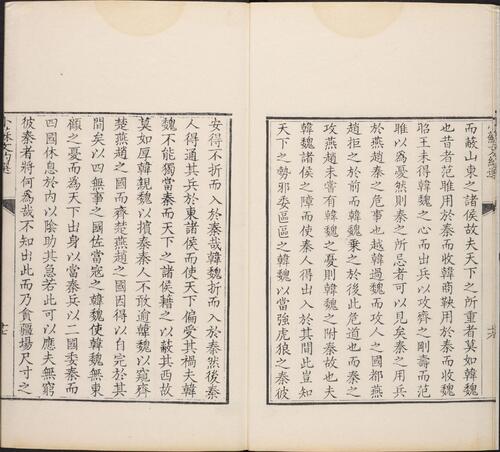 而蔽山東之諸侯故夫天下之所重者莫如韓魏
也昔者范雎用於秦而收韓商鞅用於秦而收魏
昭王未得韓魏之心而出兵以攻齊之剛壽而范
雎以爲憂然則秦之所忌者可以見矣秦之用兵
於燕趙秦之危事也越韓過魏而攻人之國都燕
趙拒之於前而韓魏乗之於後此危道也而秦之
攻燕趙未嘗有韓魏之憂則韓魏之附秦故也夫
韓魏諸侯之障而使秦人得出入於其間此豈知
天下之勢邪委區區之韓魏以當強虎狼之秦彼
安得不折而入於秦哉韓魏折而入於秦然後秦
人得通其兵於東諸侯而使天下偏受其禍夫韓
魏不能獨當秦而天下之諸侯藉之以蔽其西故
莫如厚韓親魏以擯秦秦人不敢逾韓魏以窺齊
楚燕趙之國而齊楚燕趙之國因得以自完於其
間矣以四無事之國佐當寇之韓魏使韓魏無東
顧之憂而爲天下出身以當秦兵以二國委秦而
四國休息於内以陰助其急若此可以應夫無窮
彼秦者將何爲哉不知出此而乃貪疆埸尺寸之